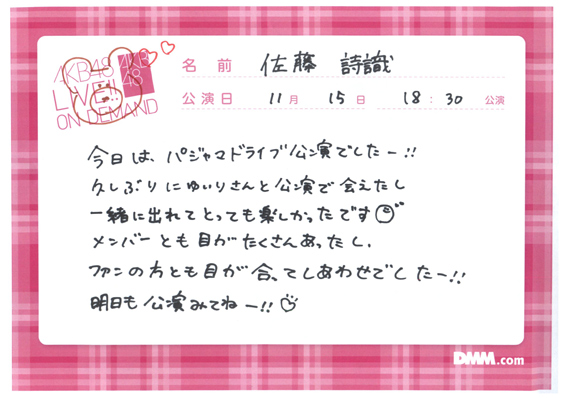 AKB48
LIVE!!
ON DEMAND
AKB
48
名前 佐藤 詩識
公演日 11月 15日 18:30 公演
今日は、パジャマドライブ公演でしたー!!
久しぶりにゆいりさんと公演で会えたし
一緒に出れてとっても楽しかったです
メンバーとも目がたくさんあったし、
ファンの方とも目が合ってしあわせでしたー!!
明日も公演みてねー!!
DMM.com